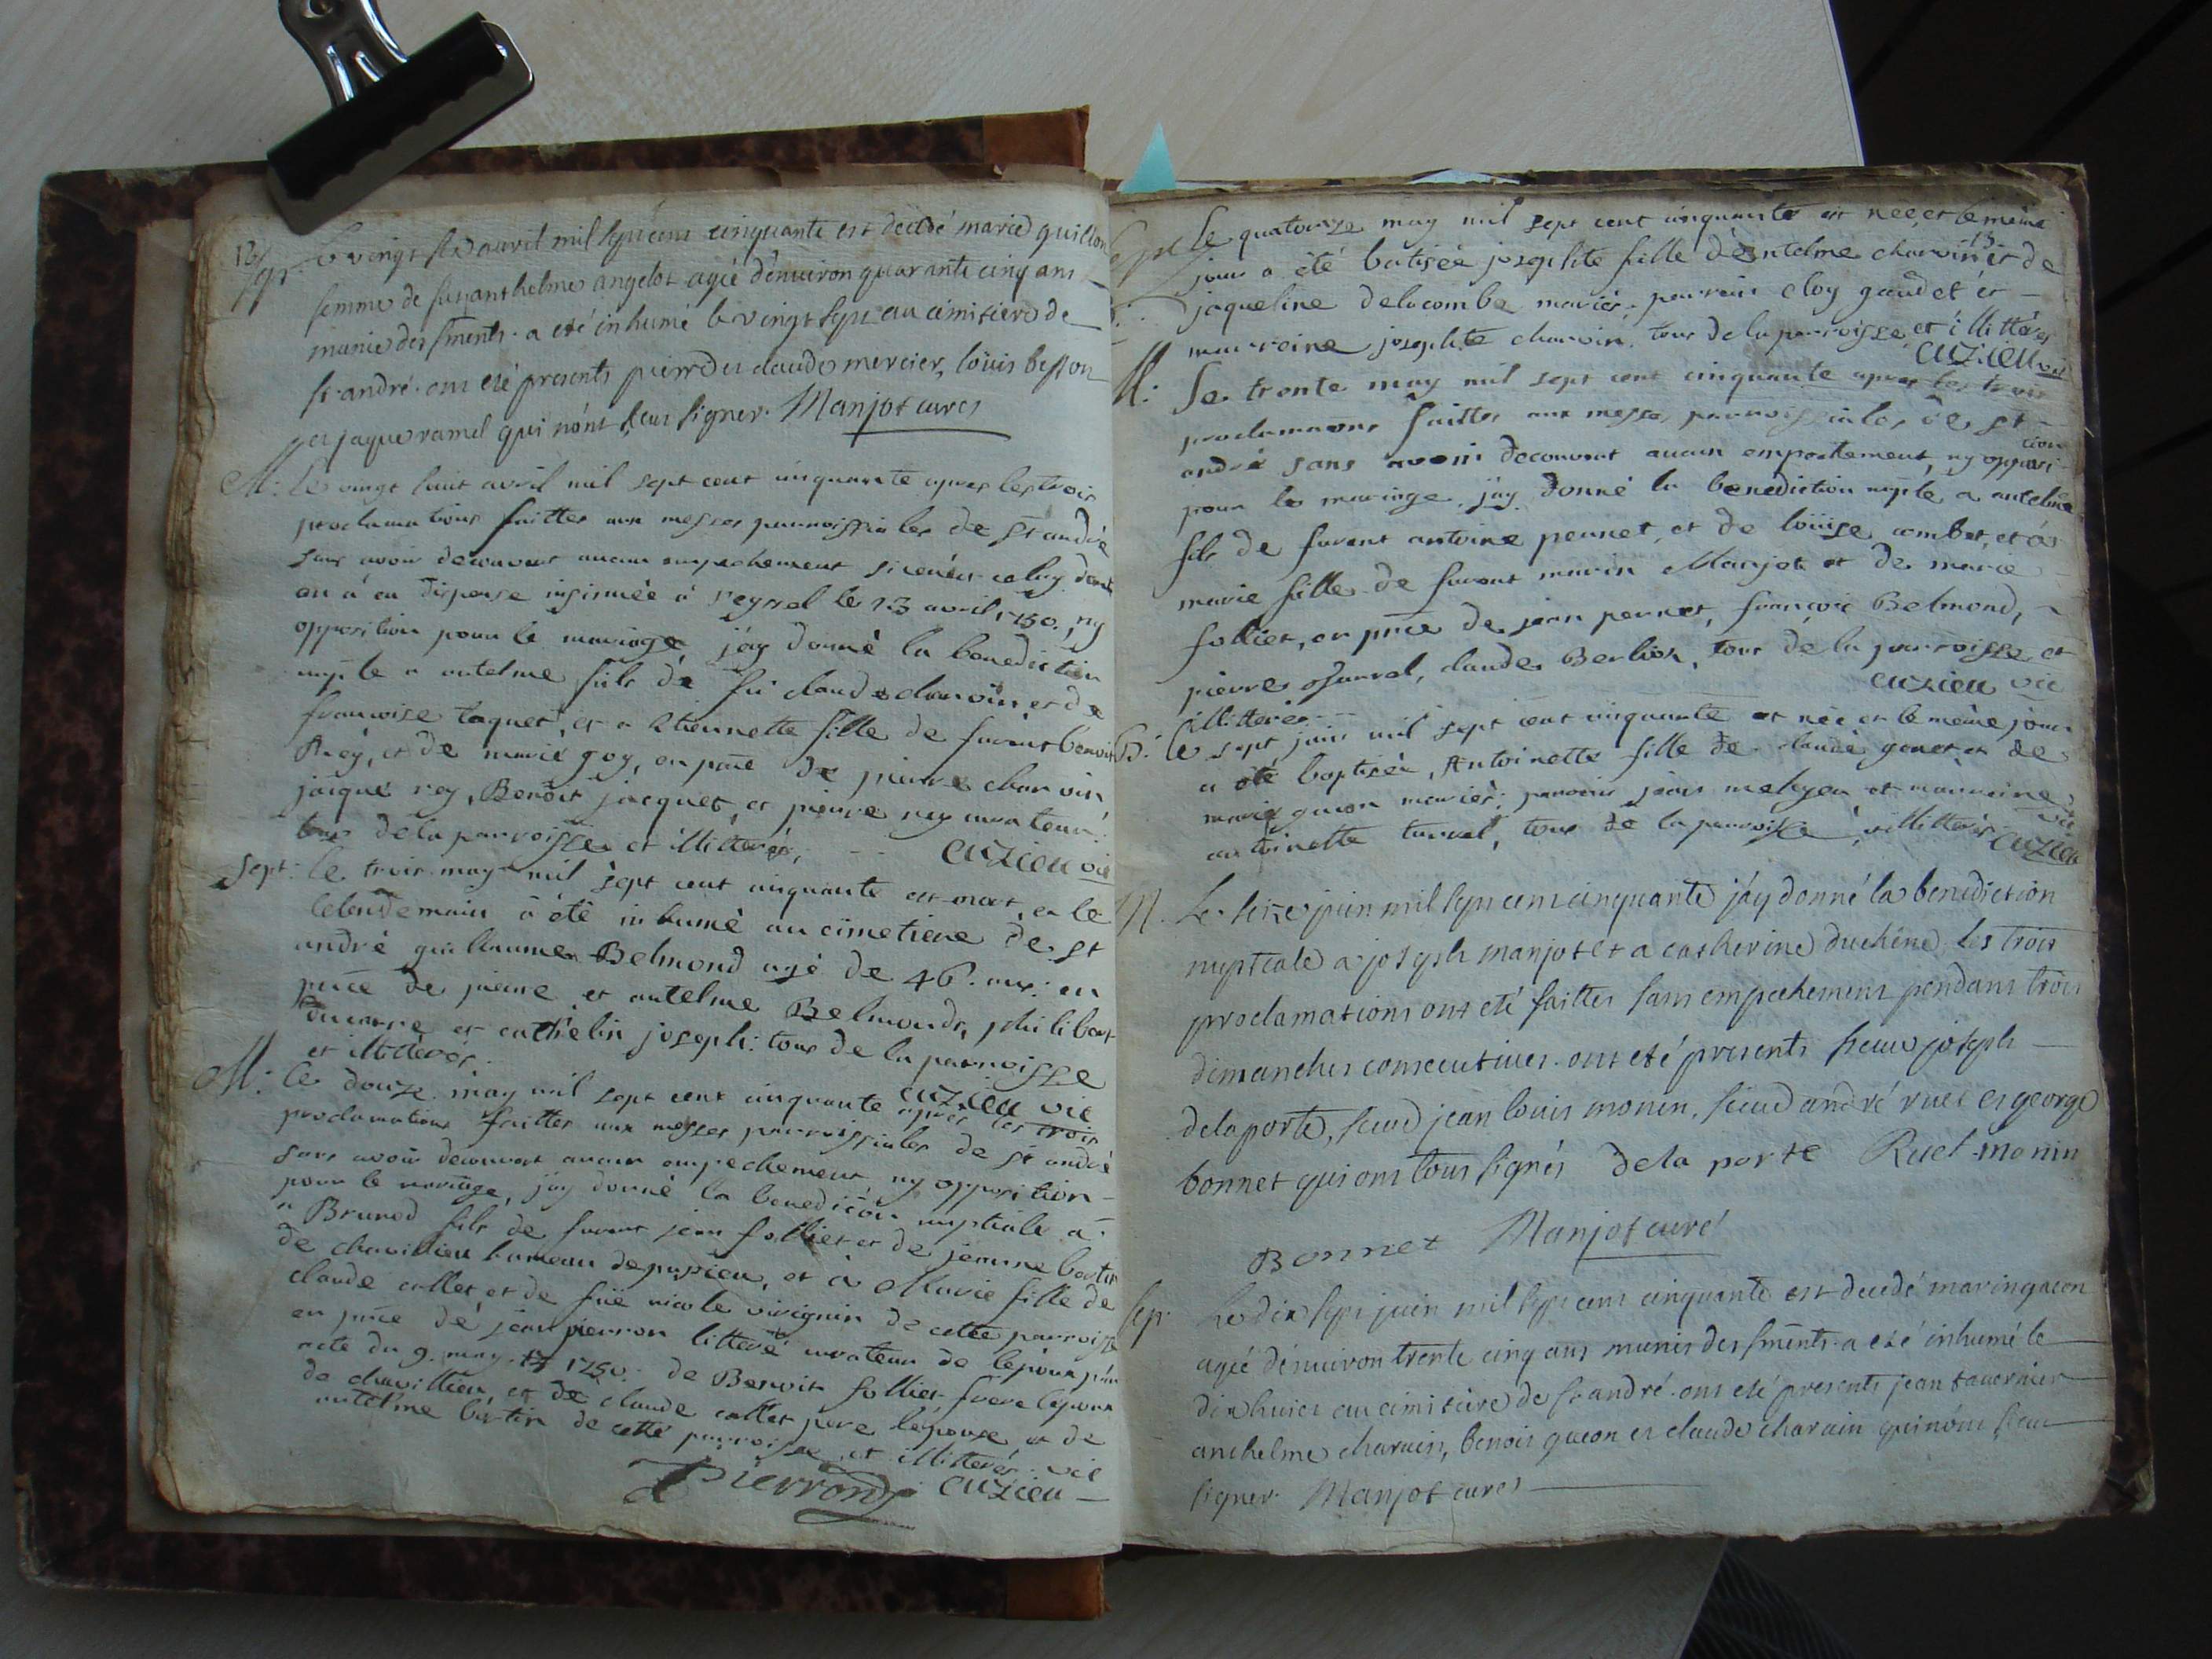 12
sep: le vingt six avril mil sept cens cinquante est decedé marie guillon
femme de anthelme angelot agée d'environ quarante cinq ans
munie des sments. a eté inhumé le vingt sept au cimitiere de
st. andré. ont eté presents pierre et claude mercier, loüis besson
et jaque ramel qui n'ont sceu signer. Manjot curé
M: le vingt huit avril mil sept cent cinquante apres les trois
proclamations faittes aux messes parroissiales de st andré
sans avoir decouvert aucun empechement si ce n'est celuy dont
on à eu dispense insinuée à seyssel le 23 avril 1750, ny
opposition pour le mariage j'ay donné la benediction
nuple a antelme fils de fû claude charvin et de
francoise taquet, et a Etiennette fille de furent benoit
Rey, et de marie goy, en pnce de pierre charvin
jaique rey, Benoit jacquet et pierre rey curateur:
tous de la parroisse et illitterés, -- cuzieu vic
sept: le trois may mil sept cent cinquante est mort, et le
lendemain à été inhumé au cimetiere de st
andré guillaume Belmond agé de 46. ans: en
pnce de pierre et antelme Belmonds, philibert
et cathelin joseph: tous de la parroisse
et illitterés. cuzieu vic
M: le douze may mil sept cent cinquante apres les trois
proclamations faittes aux messes parroissiales de st andré
sans avoir decouvert aucun empechement, ny opposition
pour le mariage, j'ay donné la benediction nuptiale a
a Brunod fils de furent jean follier et de jeanne bertin
de chavillieu hameau de pugieu, et à Marie fille de
claude callet et de fuë nicole virignin de cette parroisse
en pnce de jean pierron litteré curateur de l'epoux par
acte du 9. may 1750. de Benoit follier frere l'epoux
de chavillieu, et de claude callet pere l'epouse, et de
antelme bertin de cette parroisse, et illitterés. vic
Pierron cuzieu
13
Le quatorze may mil sept cent cinquante est neé, et le même
jour a été batisée josephte fille d'Antelme charvin et de
jaqueline delacombe mariés; parrain eloy gaudet et
marreine josephte charvin. tous de la parroisse, et illitterés
cuzieu vic
M: Le trente may mil sept cent cinquante apres les trois
proclamaons faittes aux messes parroissiales de st
andré sans avoir decouvert aucun empechement, ny opposi-tion
pour le mariage, j'ay donné la benediction nuple a antelme
fils de furent antoine pernet, et de loüise combet, et à
marie fille de furent marin Manjot et de marie
follier, en pnce de jean pernet, françois Belmond,
pierre, claude Berlion, tous de la parroisse et
illitterés. -- cuzieu vic
B: le sept juin mil sept cent cinquante est née et le même jour
a été baptisée, Antoinette fille de claude et de
marie mariés; parrain jean et marreine
antoinette, tous de la parroisse, illitterés vic
cuzieu
M. Le seize juin mil sept cens cinquante j'ay donné la benediction
nuptiale a joseph manjot et a catherine duchêne. les trois
proclamations ont eté faittes sans empechement pendant trois
dimanches consecutives. ont eté presents sieur joseph
delaporte, sieur jean louis monin, sieur andré ruet et george
bonnet qui ont tous signés De la porte Ruet monin
Bonnet Manjot curé
sep. Le dix sept juin mil sept cens cinquante est decedé marin gacon
ageé d'environ trente cinq ans munis des sments. a eté inhumé le
dix huict au cimitiere de st. andré. ont eté presents jean tavernier
anthelme charvin, benoit gacon et claude charvin qui n'ont sceu
signer. Manjot curé